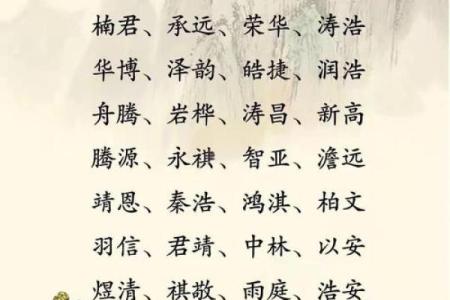 楠君、承远、荣华、涛浩
华博、泽韵、皓捷、润浩
舟腾、岩桦、涛昌、新高
腾源、永祺、智亚、澹远
靖恩、秦浩、鸿淇、柏文
羽信、君靖、中林、以安
煜清、祺敬、雨庭、浩安